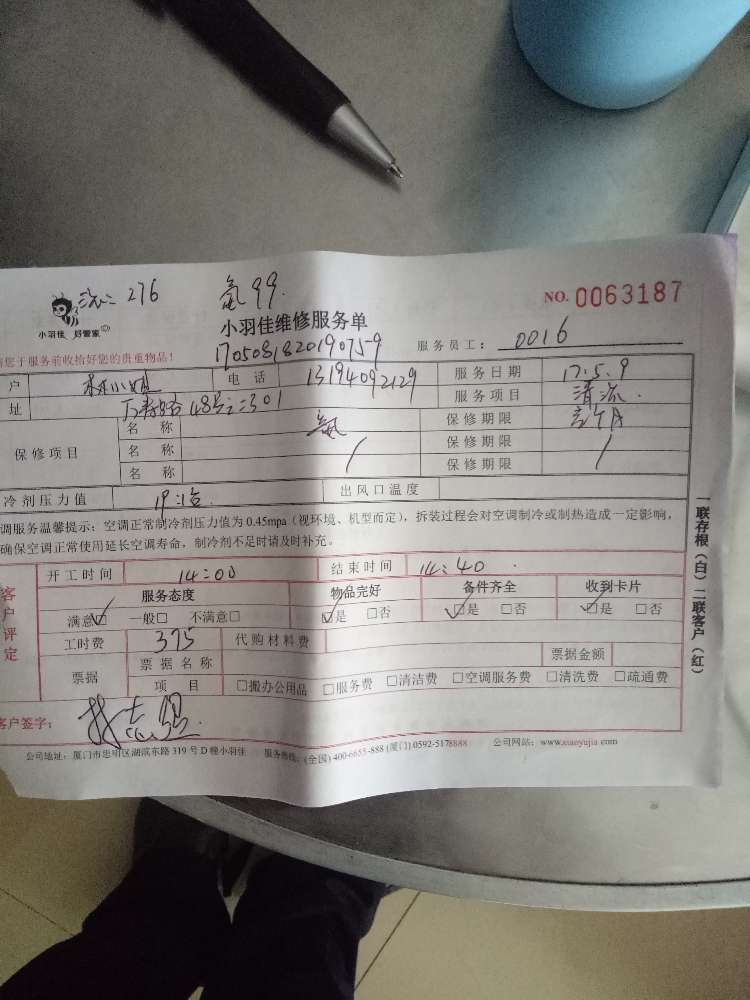 洗二 276 氟99.
NO. 0063187
小羽佳 好管家
小羽佳维修服务单
服务员工: 0016
您于服务前收拾好您的贵重物品!
170508182019075-9
户 林小姐 电话 13194092129 服务日期 17.5.9
址 万寿路48号之二301 服务项目 清洗.
保修项目 名称 氟 保修期限 个月
名称 / 保修期限 /
名称 保修期限
冷剂压力值 出风口温度
调服务温馨提示:空调正常制冷剂压力值为0.45mpa(视环境、机型而定),拆装过程会对空调制冷或制热造成一定影响,
确保空调正常使用延长空调寿命,制冷剂不足时请及时补充。
开工时间 14:00 结束时间 14:40
客户评定
服务态度 物品完好 备件齐全 收到卡片
满意☑ 一般□ 不满意□ ☑是 □否 ☑是 □否 ☑是 □否
工时费 375 代购材料费
票据 票据名称 票据金额
项目 □搬办公用品 □服务费 □清洁费 □空调服务费 □清洗费 □疏通费
客户签字:
公司地址:厦门市思明区湖滨东路319号D幢小羽佳 服务热线:(全国)400-6655-888 (厦门)0592-5178888 公司网站:www.xiaoyujia com
一联存根(白)二联客户(红)